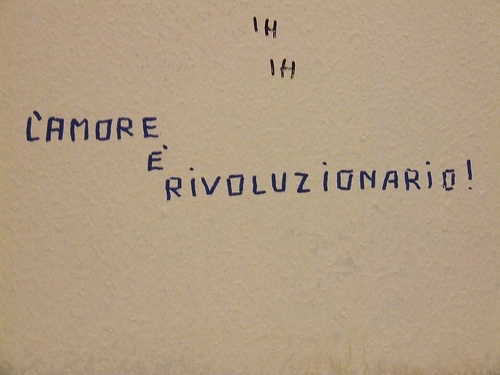 IH
IH
L'AMORE
È
RiVOLUZiONARiO!